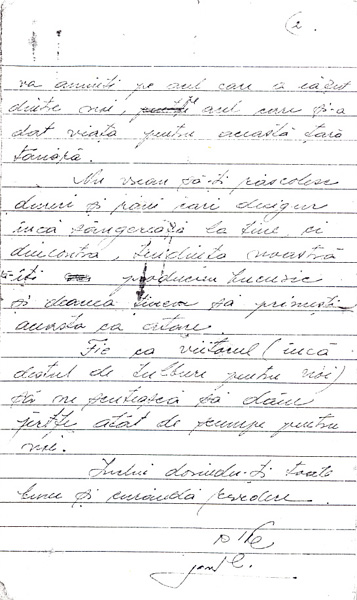 2.
va aminti pe cel care a căzut
dintre noi, cel care și-a
dat viața pentru această țară
tânără.
Nu vreau să-ți răscolesc
dureri și răni cari desigur
încă sângerează la tine, ci
dincontra, tendința noastră
îți producem bucurie
și deaceea ținem să primești
aceasta ca atare.
Fie ca viitorul (încă
destul de tulbure pentru noi)
să ne scutească să dăm
jertfe atât de scumpe pentru
noi.
Închei dorindu-ți toate
bune și curândă revedere.